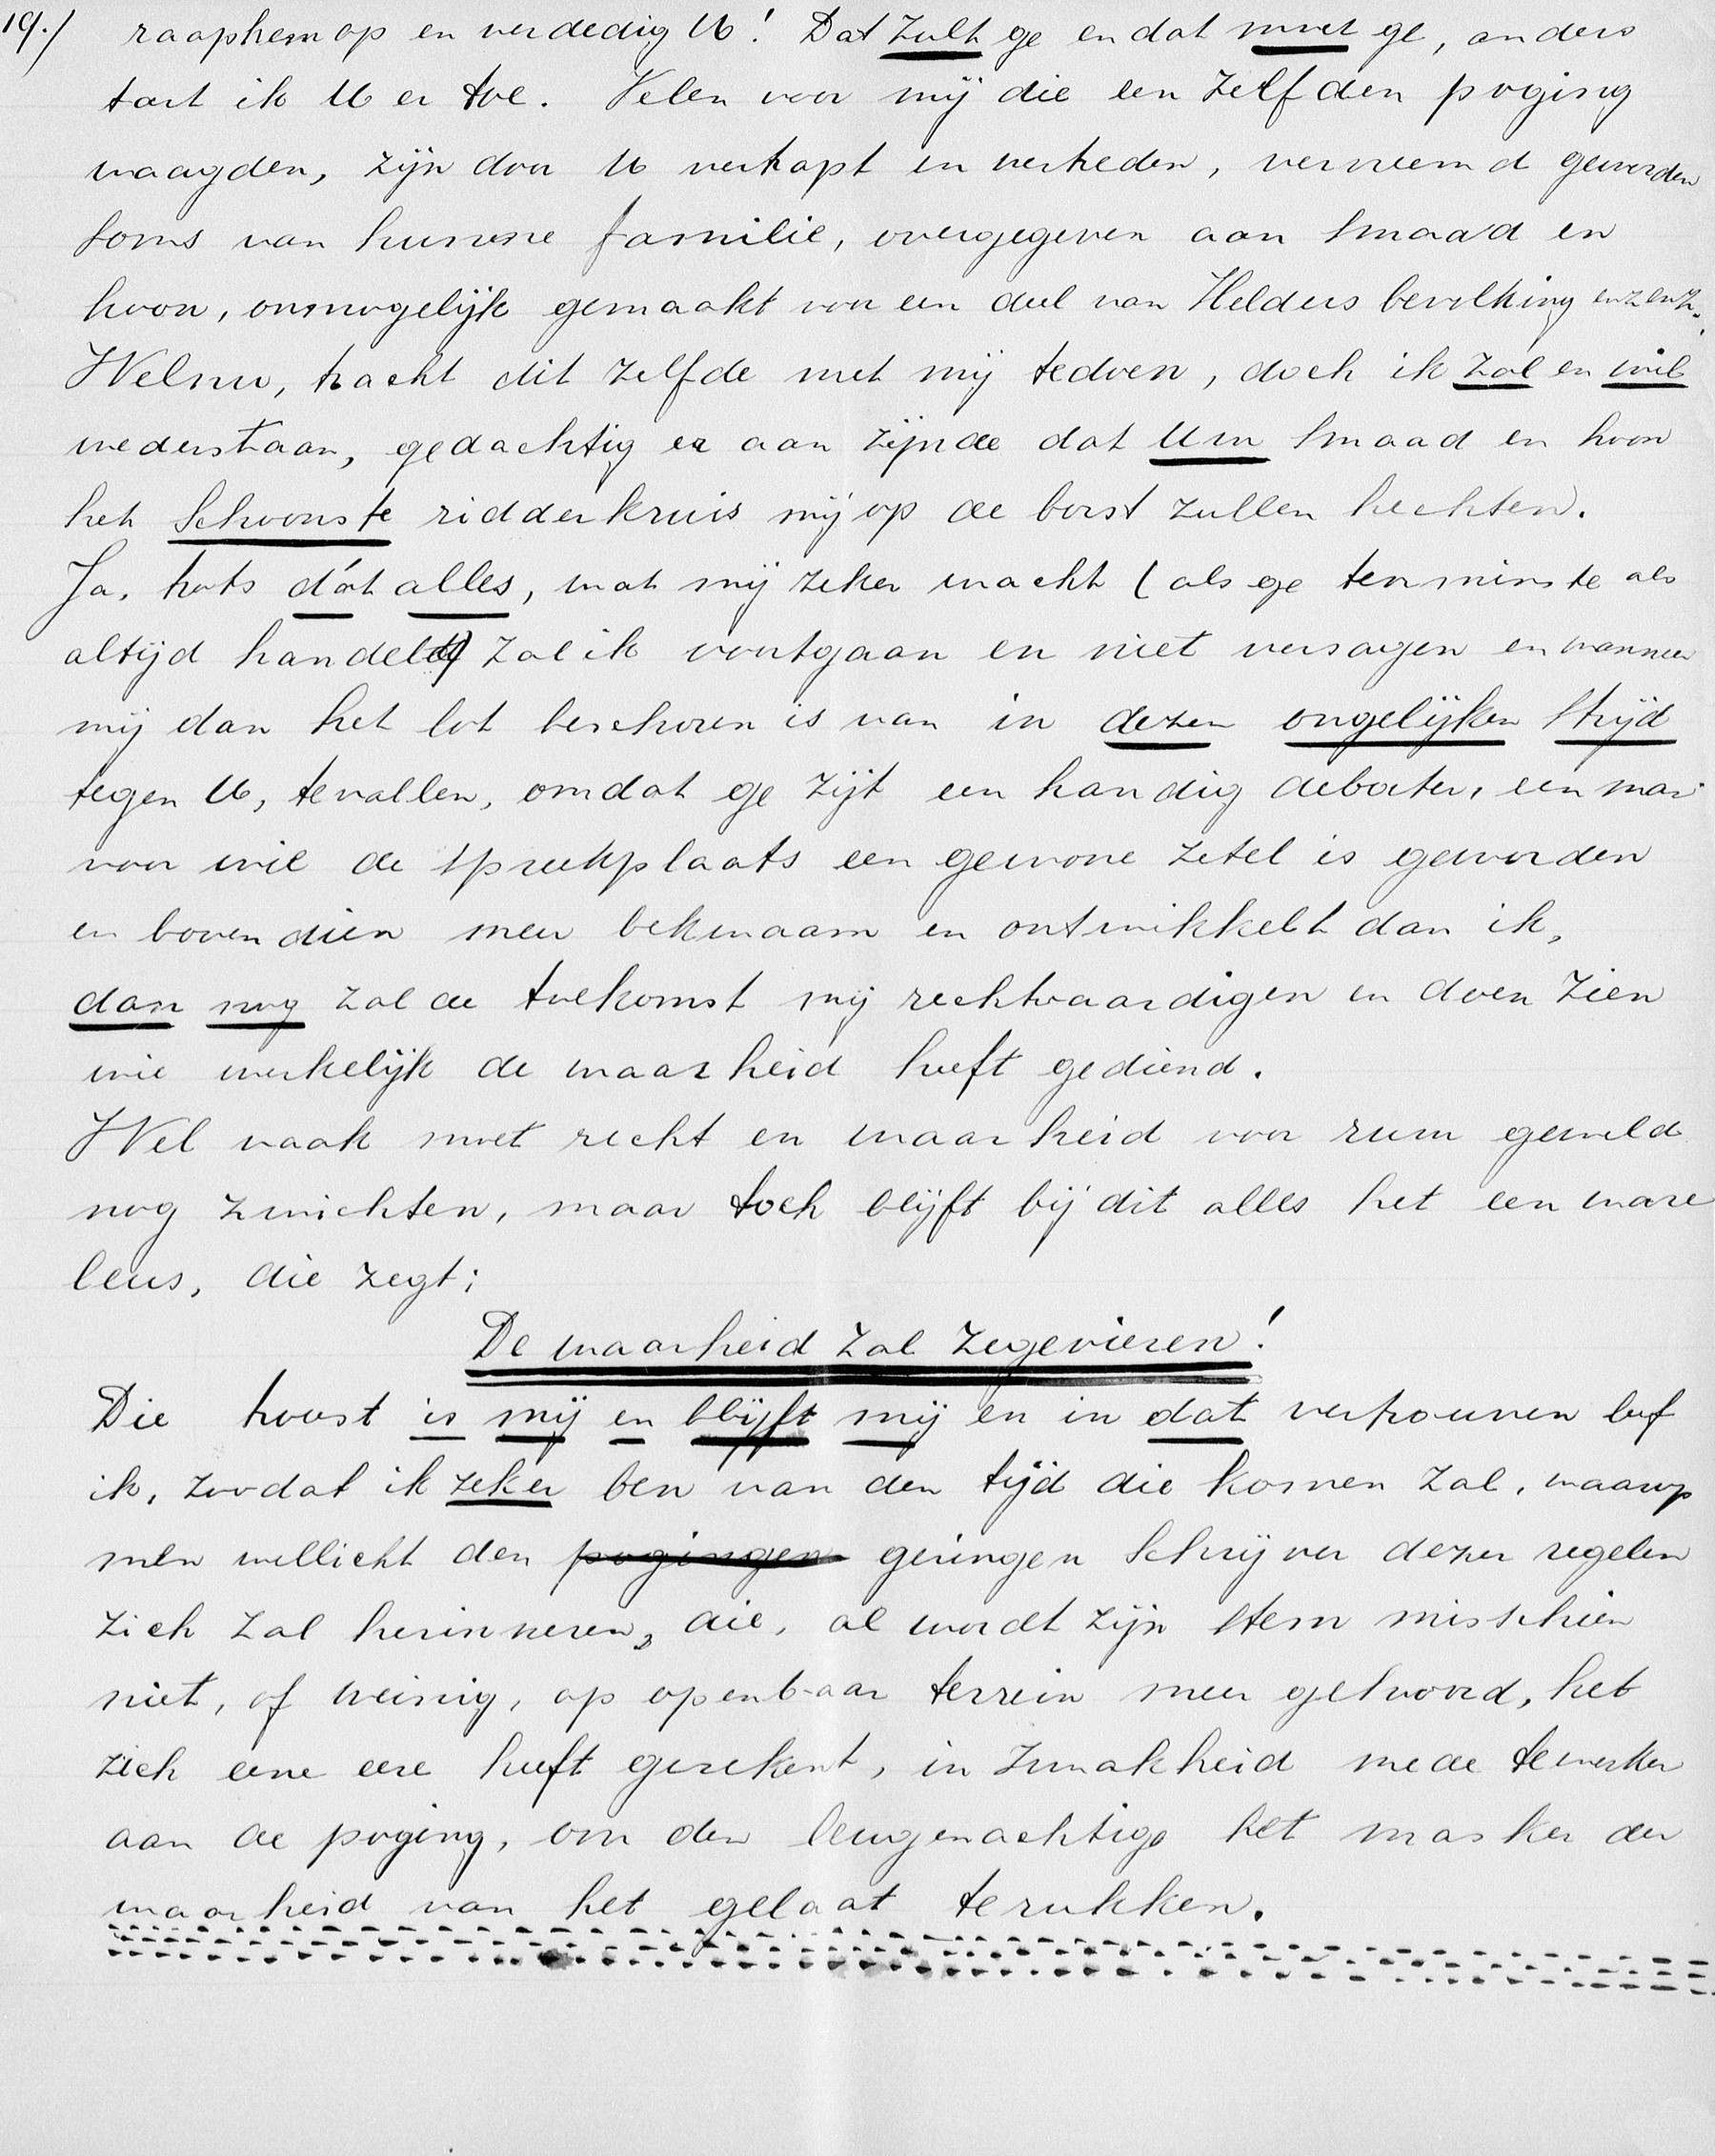 19./ raap hem op en verdedig U! Dat zult ge en dat moet ge, anders
tart ik U er toe. Velen voor mij die een zelfden poging
waagden, zijn door U vertrapt en vertreden, vervreemd geworden
soms van hunne familie, overgegeven aan smaad en
hoon, onmogelijk gemaakt voor een deel van Helders bevolking enz enz.
Welnu, tracht dit zelfde met mij te doen, doch ik zal en wil
wederstaan, gedachtig er aan zijnde dat Uw smaad en hoon
het schoonste ridderkruis mij op de borst zullen hechten.
Ja, trots dát alles, wat mij zeker wacht (als ge tenminste als
altijd handelt) zal ik voortgaan en niet versagen en wanneer
mij dan het lot beschoren is van in dezen ongelijken strijd
tegen U, te vallen, omdat ge zijt een handig debater, een man
voor wie de spreekplaats een gewone zetel is geworden
en bovendien meer bekwaam en ontwikkelt dan ik,
dan nog zal de toekomst mij rechtvaardigen en doen zien
wie werkelijk de waarheid heeft gediend.
Wel vaak moet recht en waarheid voor ruw geweld
nog zwichten, maar toch blijft bij dit alles het een ware
leus, die zegt;
De waarheid zal zegevieren!
Die troost is mij en blijft mij en in dat vertrouwen leef
ik, zoodat ik zeker ben van den tijd die komen zal, waarop
men wellicht den pogingen geringen schrijver dezer regelen
zich zal herinneren, die, al wordt zijn stem misschien
niet, of weinig, op openbaar terrein meer gehoord, het
zich eene eere heeft gerekent, in zwakheid mede te werken
aan de poging, om den leugenachtige het masker der
waarheid van het gelaat te rukken.